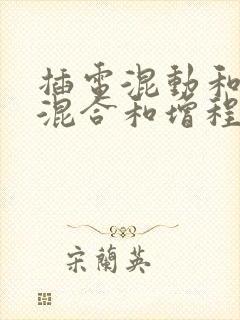 插电混動和
混合和增程
宋蘭英